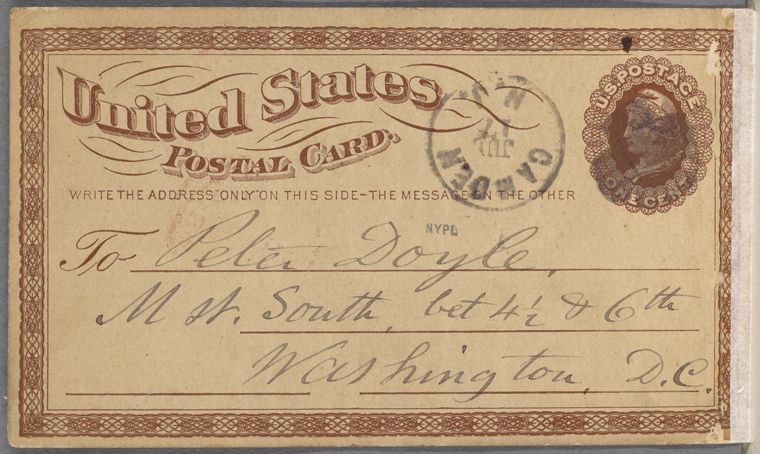 United States
POSTAL CARD.
U.S. POSTAGE
ONE CENT
CAMDEN
N.J.
JUL
17
WRITE THE ADDRESS "ONLY" ON THIS SIDE – THE MESSAGE ON THE OTHER
NYPL
To Peter Doyle.
M st. South, bet 4½ & 6th
Washington, D.C.